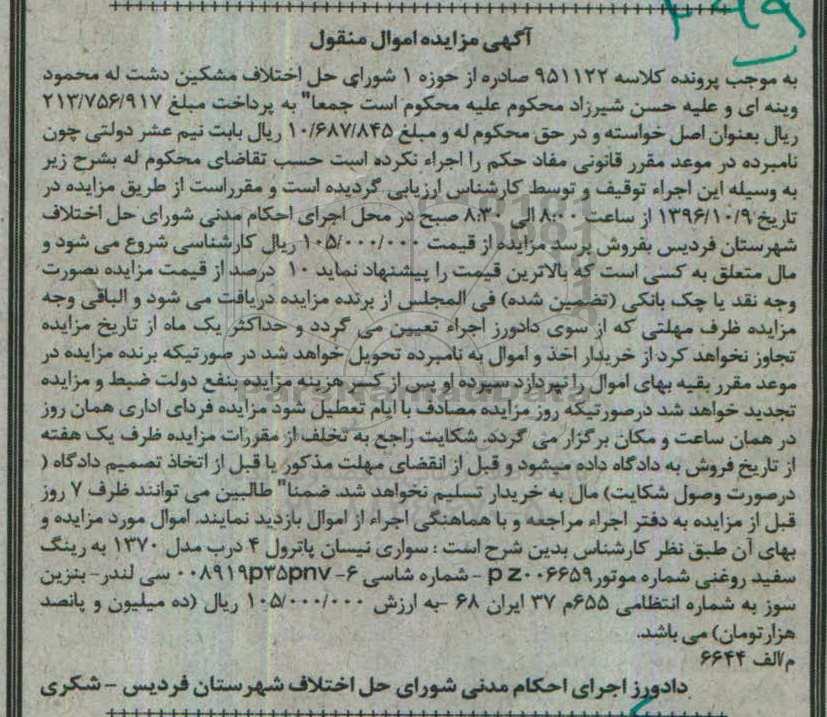 آگهی مزایده اموال منقول
به موجب پرونده کلاسه ۹۵۱۱۲۲ صادره از حوزه ۱ شورای حل اختلاف مشکین دشت له محمود
وینه ای و علیه حسن شیرزاد محکوم علیه محکوم است جمعا" به پرداخت مبلغ ۲۱۳/۷۵۶/۹۱۷
ریال بعنوان اصل خواسته و در حق محکوم له و مبلغ ۱۰/۶۸۷/۸۴۵ ریال بابت نیم عشر دولتی چون
نامبرده در موعد مقرر قانونی مفاد حکم را اجراء نکرده است حسب تقاضای محکوم له بشرح زیر
به وسیله این اجراء توقیف و توسط کارشناس ارزیابی گردیده است و مقرراست از طریق مزایده در
تاریخ ۱۳۹۶/۱۰/۹ از ساعت ۸:۰۰ الی ۸:۳۰ صبح در محل اجرای احکام مدنی شورای حل اختلاف
شهرستان فردیس بفروش برسد مزایده از قیمت ۱۰۵/۰۰۰/۰۰۰ ریال کارشناسی شروع می شود و
مال متعلق به کسی است که بالاترین قیمت را پیشنهاد نماید ۱۰ درصد از قیمت مزایده بصورت
وجه نقد یا چک بانکی (تضمین شده) فی المجلس از برنده مزایده دریافت می شود و الباقی وجه
مزایده ظرف مهلتی که از سوی دادورز اجراء تعیین می گردد و حداکثر یک ماه از تاریخ مزایده
تجاوز نخواهد کرد از خریدار اخذ و اموال به نامبرده تحویل خواهد شد در صورتیکه برنده مزایده در
موعد مقرر بقیه بهای اموال را نپردازد سپرده او پس از کسر هزینه مزایده بنفع دولت ضبط و مزایده
تجدید خواهد شد درصورتیکه روز مزایده مصادف با ایام تعطیل شود مزایده فردای اداری همان روز
در همان ساعت و مکان برگزار می گردد. شکایت راجع به تخلف از مقررات مزایده ظرف یک هفته
از تاریخ فروش به دادگاه داده میشود و قبل از انقضای مهلت مذکور یا قبل از اتخاذ تصمیم دادگاه (
درصورت وصول شکایت) مال به خریدار تسلیم نخواهد شد. ضمنا" طالبین می توانند ظرف ۷ روز
قبل از مزایده به دفتر اجراء مراجعه و با هماهنگی اجراء از اموال بازدید نمایند. اموال مورد مزایده و
بهای آن طبق نظر کارشناس بدین شرح است : سواری نیسان پاترول ۴ درب مدل ۱۳۷۰ به رینگ
سفید روغنی شماره موتور p z۰۰۶۶۵۹ - شماره شاسی ۶- ۰۰۸۹۱۹p۳۵pnv سی لندر- بنزین
سوز به شماره انتظامی ۶۵۵م ۳۷ ایران ۶۸ -به ارزش ۱۰۵/۰۰۰/۰۰۰ ریال (ده میلیون و پانصد
هزارتومان) می باشد.
م/الف ۶۶۴۴
دادورز اجرای احکام مدنی شورای حل اختلاف شهرستان فردیس - شکری
ParsNamadData